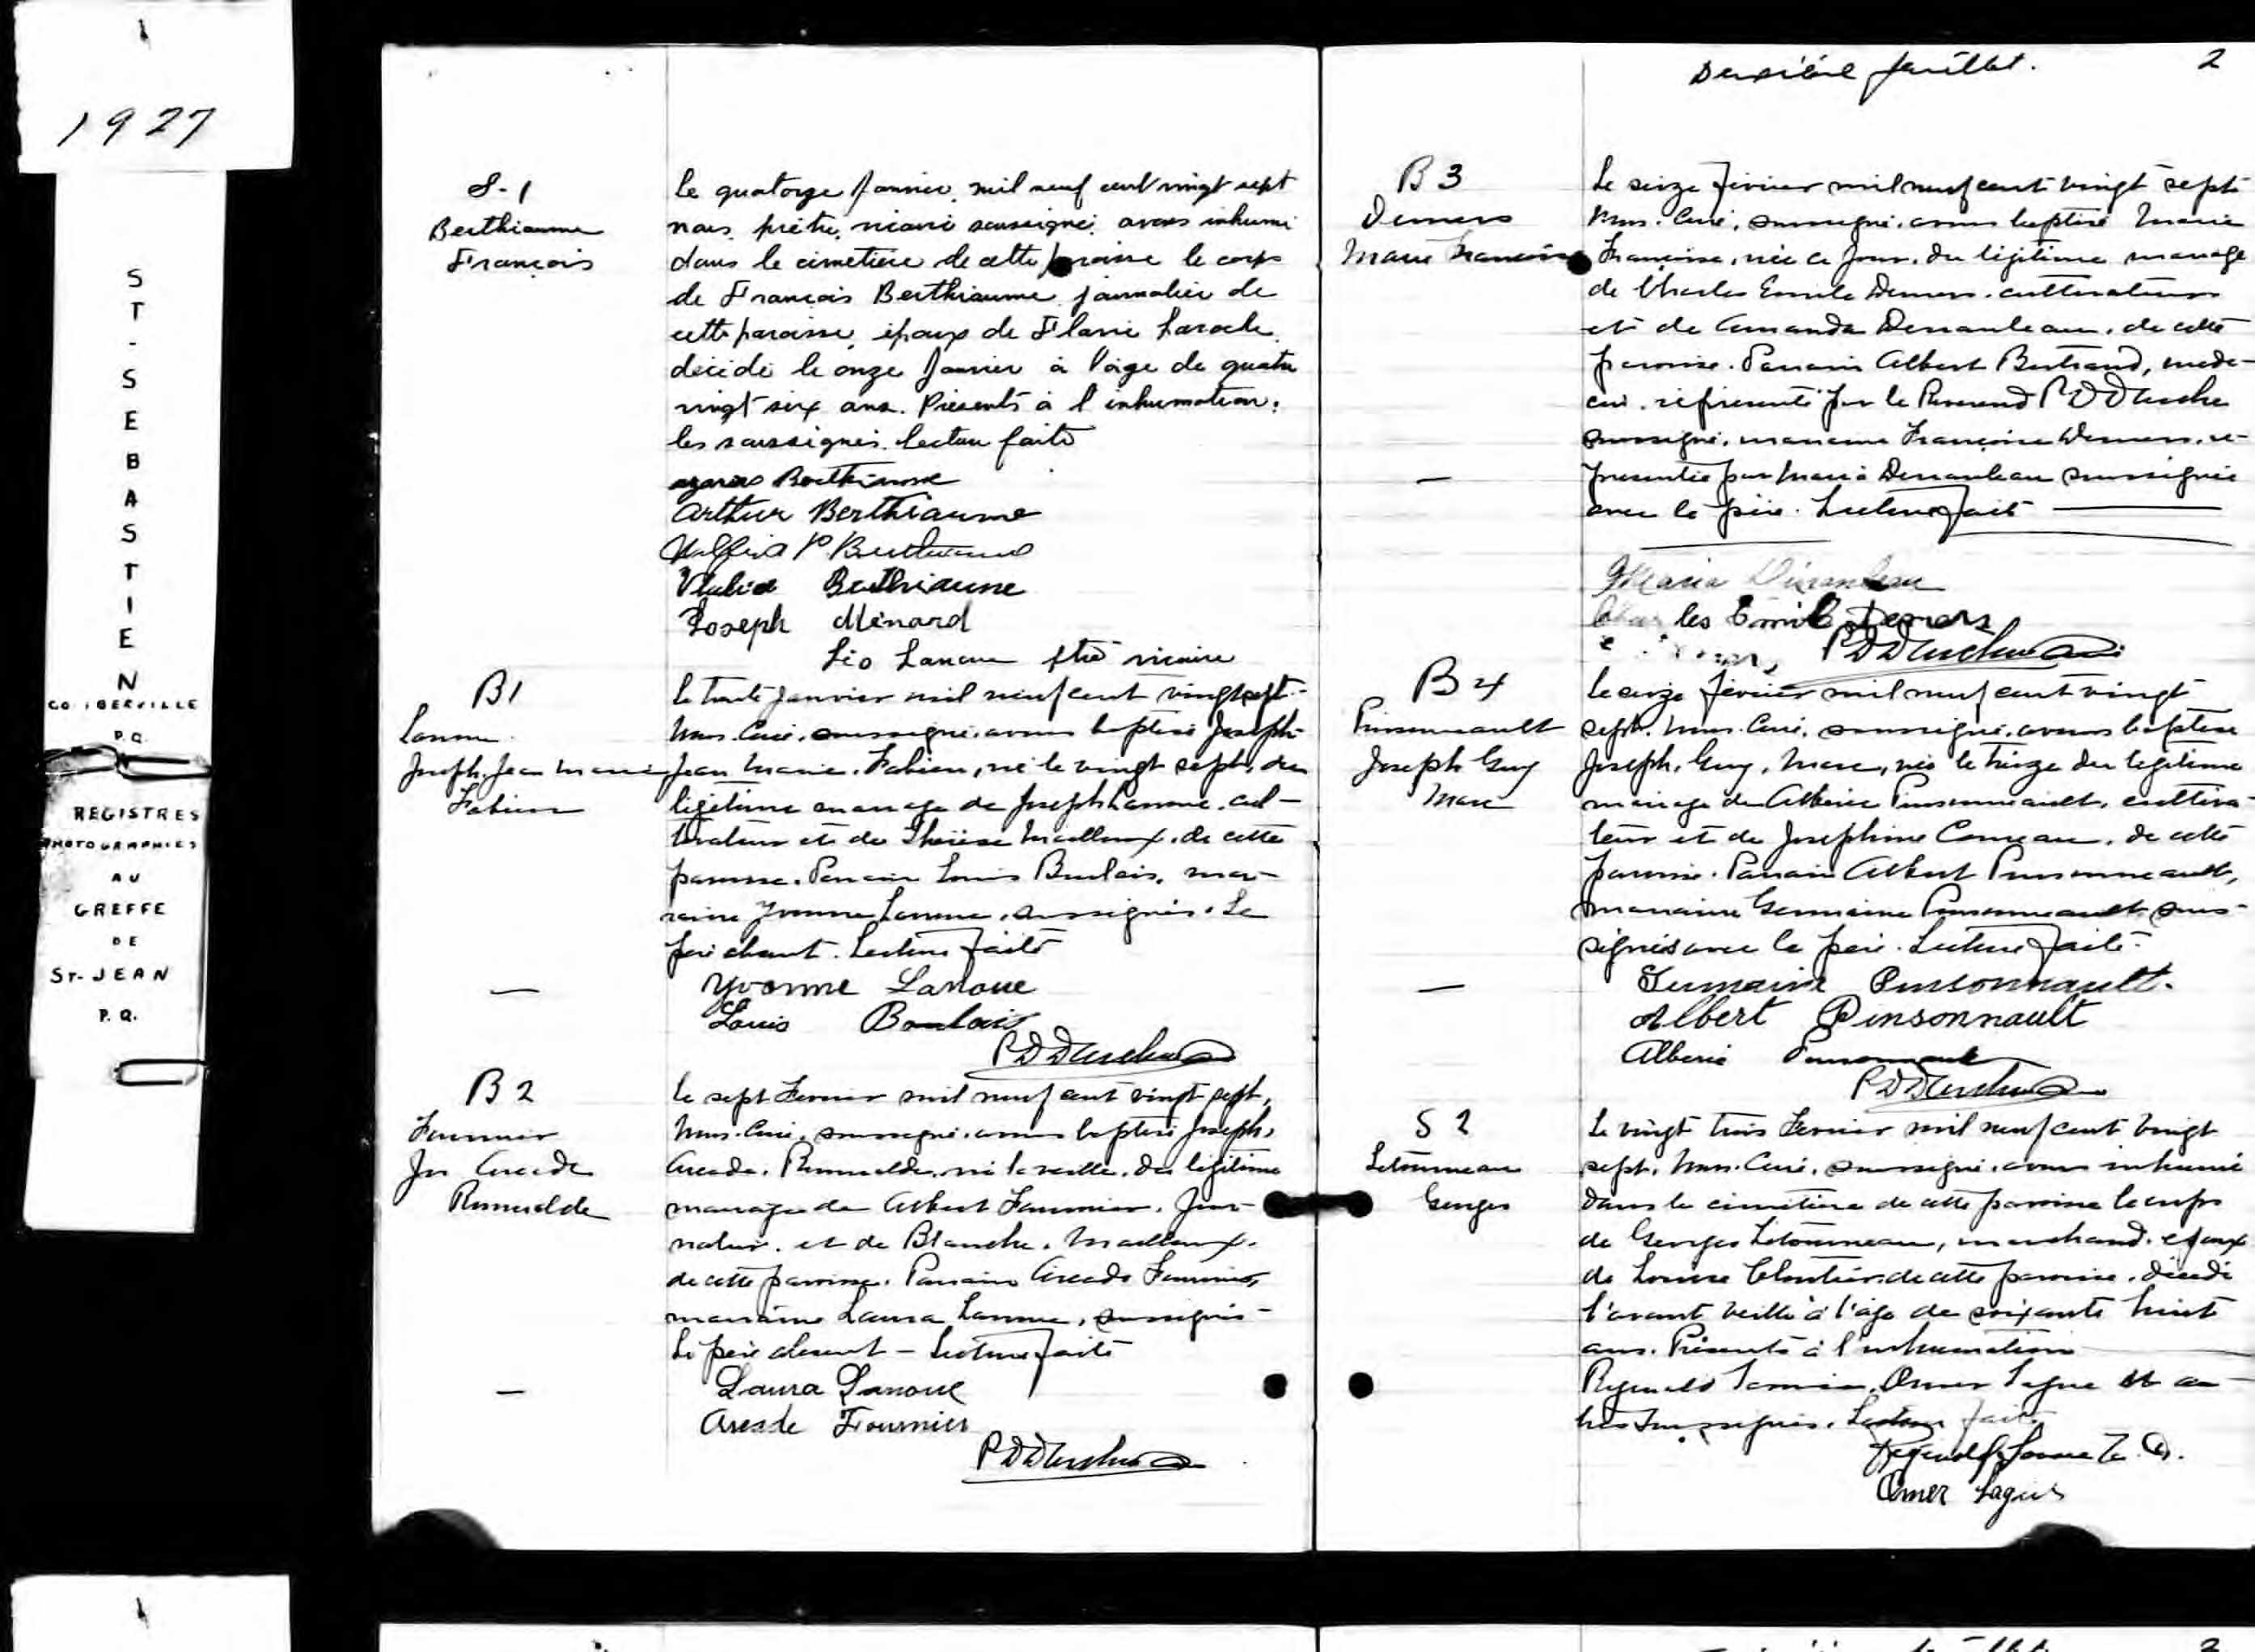 1927
ST-SEBASTIEN
CO. IBERVILLE
P.Q.
REGISTRES
PHOTOGRAPHIES
AU
GREFFE
DE
ST-JEAN
P.Q.
S-1
Berthiaume
François
le quatorze Janvier, mil neuf cent vingt sept
nous, prêtre, vicaire soussigné, avons inhumé
dans le cimetière de cette paroisse le corps
de François Berthiaume, journalier de
cette paroisse, époux de Flavie Laroche
décédé le onze Janvier à l'âge de quatre
vingt six ans. Présents à l'inhumation:
les soussignés. Lecture faite
Berthiaume
Arthur Berthiaume
P. Berthiaume
Berthiaume
Joseph Ménard
Léo Lanoue ptre vicaire
B1
Lanoue
Joseph Jean Marie
Fabien
le trente Janvier mil neuf cent vingt sept
Nous, Curé, soussigné, avons baptisé Joseph-
Jean Marie, Fabien, né le vingt sept, du
légitime mariage de Joseph Lanoue, cul-
tivateur et de Thérèse Mailloux, de cette
paroisse. Parrain Louis Boulais, mar-
raine Yvonne Lanoue, soussignés. Le
père absent. Lecture faite
Yvonne Lanoue
Louis Boulais
B2
Fournier
Jos Arcade
Romualde
le sept Fevrier mil neuf cent vingt sept,
Nous, Curé, soussigné, avons baptisé Joseph,
Arcade, Romualde, né la veille, du légitime
mariage de Albert Fournier, jour-
nalier, et de Blanche Mailloux,
de cette paroisse. Parrain Arcade Fournier,
marraine Laura Lanoue, soussignés-
Le père absent - Lecture faite
Laura Lanoue
Arcade Fournier
Deuxième feuillet. 2
B3
Demers
Marie Françoise
Le seize février mil neuf cent vingt sept
Nous, Curé, soussigné, avons baptisé Marie
Françoise, née ce jour, du légitime mariage
de Charles Emile Demers, cultivateur
et de Amanda Deranleau, de cette
paroisse. Parrain Albert Bertrand, méde-
cin, représenté par le Révérend P D
soussigné, marraine Françoise Demers, re-
présentée par Maria Deranleau soussignée
avec le père. Lecture faite
Maria Deranleau
Charles Emile Demers
B4
Pinsonneault
Joseph Guy
Marc
le seize février mil neuf cent vingt
sept, Nous, Curé, soussigné, avons baptisé
Joseph, Guy, Marc, né le treize du légitime
mariage de Albéric Pinsonneault, cultiva-
teur et de Josephine Comeau, de cette
paroisse. Parrain Albert Pinsonneault,
marraine Germaine Pinsonneault sous-
signés avec le père. Lecture faite.
Germaine Pinsonnault.
Albert Pinsonnault
Alberic Pinsonnault
S2
Letourneau
Georges
Le vingt trois Fevrier mil neuf cent vingt
sept, Nous, Curé, soussigné, avons inhumé
dans le cimetière de cette paroisse le corps
de Georges Letourneau, marchand, époux
de Louise Cloutier, de cette paroisse, décédé
l'avant veille à l'âge de soixante huit
ans. Présents à l'inhumation
Omer Lague et au-
tres soussignés. Lecture faite
Omer Lague